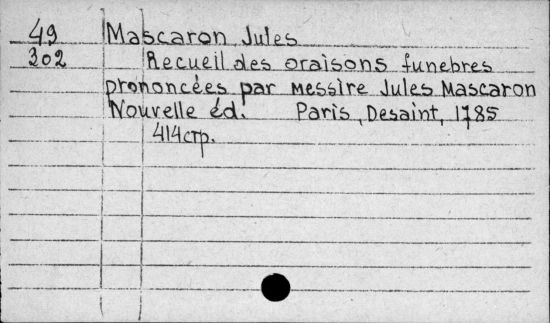 49 Mascaron Jules
302 Recueil des oraisons funebres
prononcées par Messire Jules Mascaron
Nouvelle éd. Paris, Desaint, 1785
414стр.